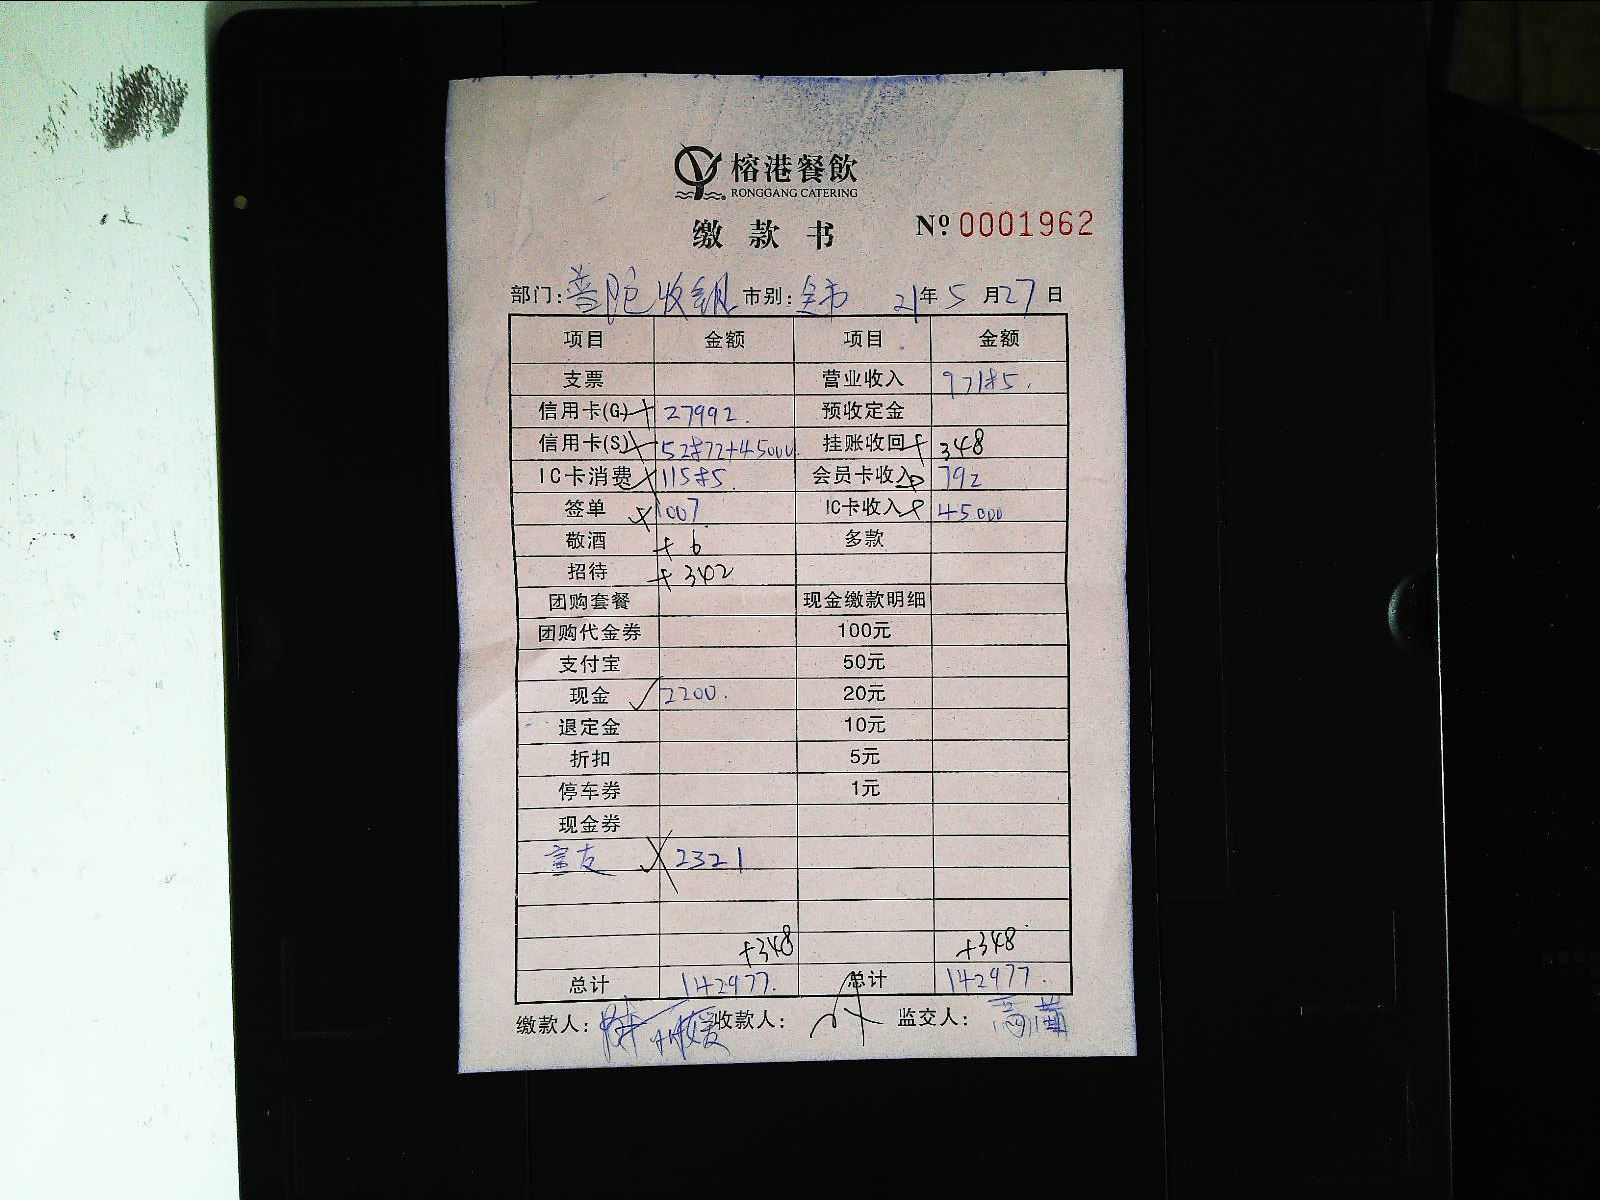 榕港餐飲
RONGGANG CATERING
缴款书 Nº 0001962
部门: 普陀收银 市别: 全市 21年 5月27日
项目 金额 项目 金额
支票 营业收入 97185.
信用卡(G) + 27992. 预收定金
信用卡(S) 52872+45000. 挂账收回 + 348
IC卡消费 11585. 会员卡收入 792
签单 1007. IC卡收入 45000
敬酒 + 6 多款
招待 + 342
团购套餐 现金缴款明细
团购代金券 100元
支付宝 50元
现金 ✓ 2200. 20元
退定金 10元
折扣 5元
停车券 1元
现金券
2321
+348 +348
总计 142977. 总计 142977.
缴款人: 收款人: 监交人: